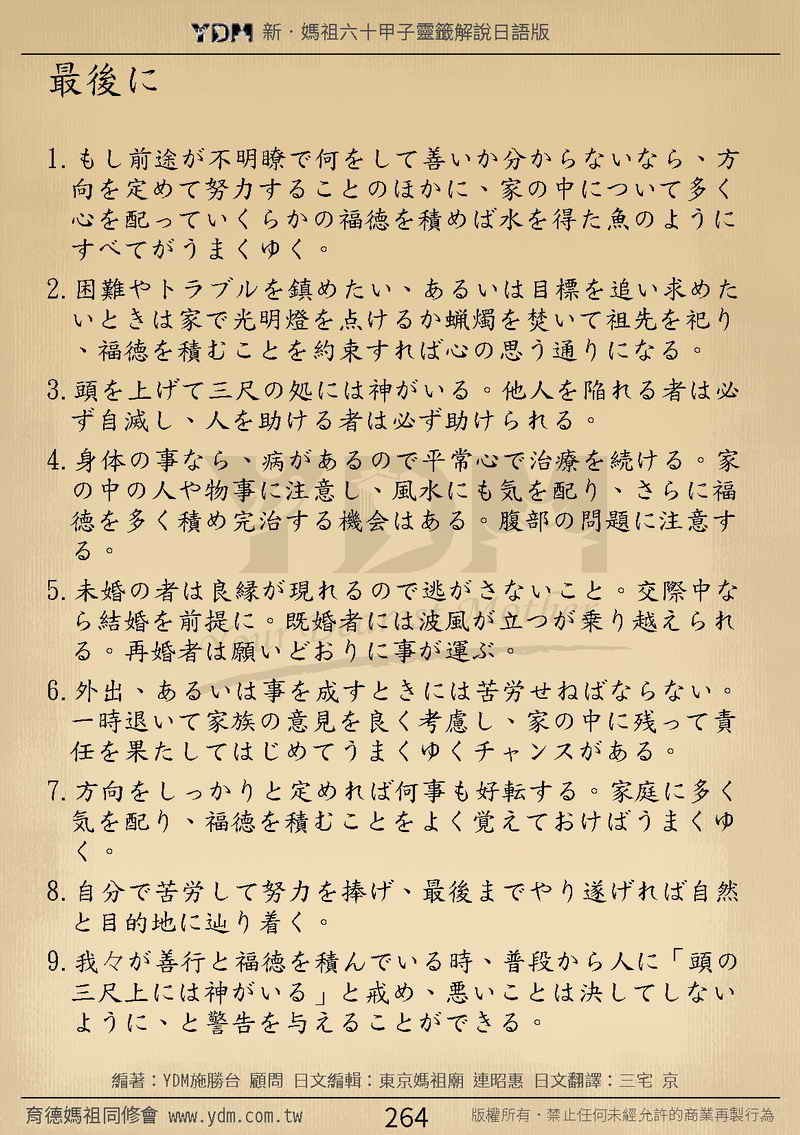 YDM 新・媽祖六十甲子靈籤解說日語版
最後に
1. もし前途が不明瞭で何をして善いか分からないなら、方
向を定めて努力することのほかに、家の中について多く
心を配っていくらかの福徳を積めば水を得た魚のように
すべてがうまくゆく。
2. 困難やトラブルを鎮めたい、あるいは目標を追い求めた
いときは家で光明燈を点けるか蝋燭を焚いて祖先を祀り
、福徳を積むことを約束すれば心の思う通りになる。
3. 頭を上げて三尺の処には神がいる。他人を陥れる者は必
ず自滅し、人を助ける者は必ず助けられる。
4. 身体の事なら、病があるので平常心で治療を続ける。家
の中の人や物事に注意し、風水にも気を配り、さらに福
徳を多く積め完治する機会はある。腹部の問題に注意す
る。
5. 未婚の者は良縁が現れるので逃がさないこと。交際中な
ら結婚を前提に。既婚者には波風が立つが乗り越えられ
る。再婚者は願いどおりに事が運ぶ。
6. 外出、あるいは事を成すときには苦労せねばならない。
一時退いて家族の意見を良く考慮し、家の中に残って責
任を果たしてはじめてうまくゆくチャンスがある。
7. 方向をしっかりと定めれば何事も好転する。家庭に多く
気を配り、福徳を積むことをよく覚えておけばうまくゆ
く。
8. 自分で苦労して努力を捧げ、最後までやり遂げれば自然
と目的地に辿り着く。
9. 我々が善行と福徳を積んでいる時、普段から人に「頭の
三尺上には神がいる」と戒め、悪いことは決してしない
ように、と警告を与えることができる。
編著：YDM施勝台 顧問 日文編輯：東京媽祖廟 連昭惠 日文翻譯：三宅 京
育德媽祖同修會 www.ydm.com.tw 264 版權所有・禁止任何未經允許的商業再製行為
YDM